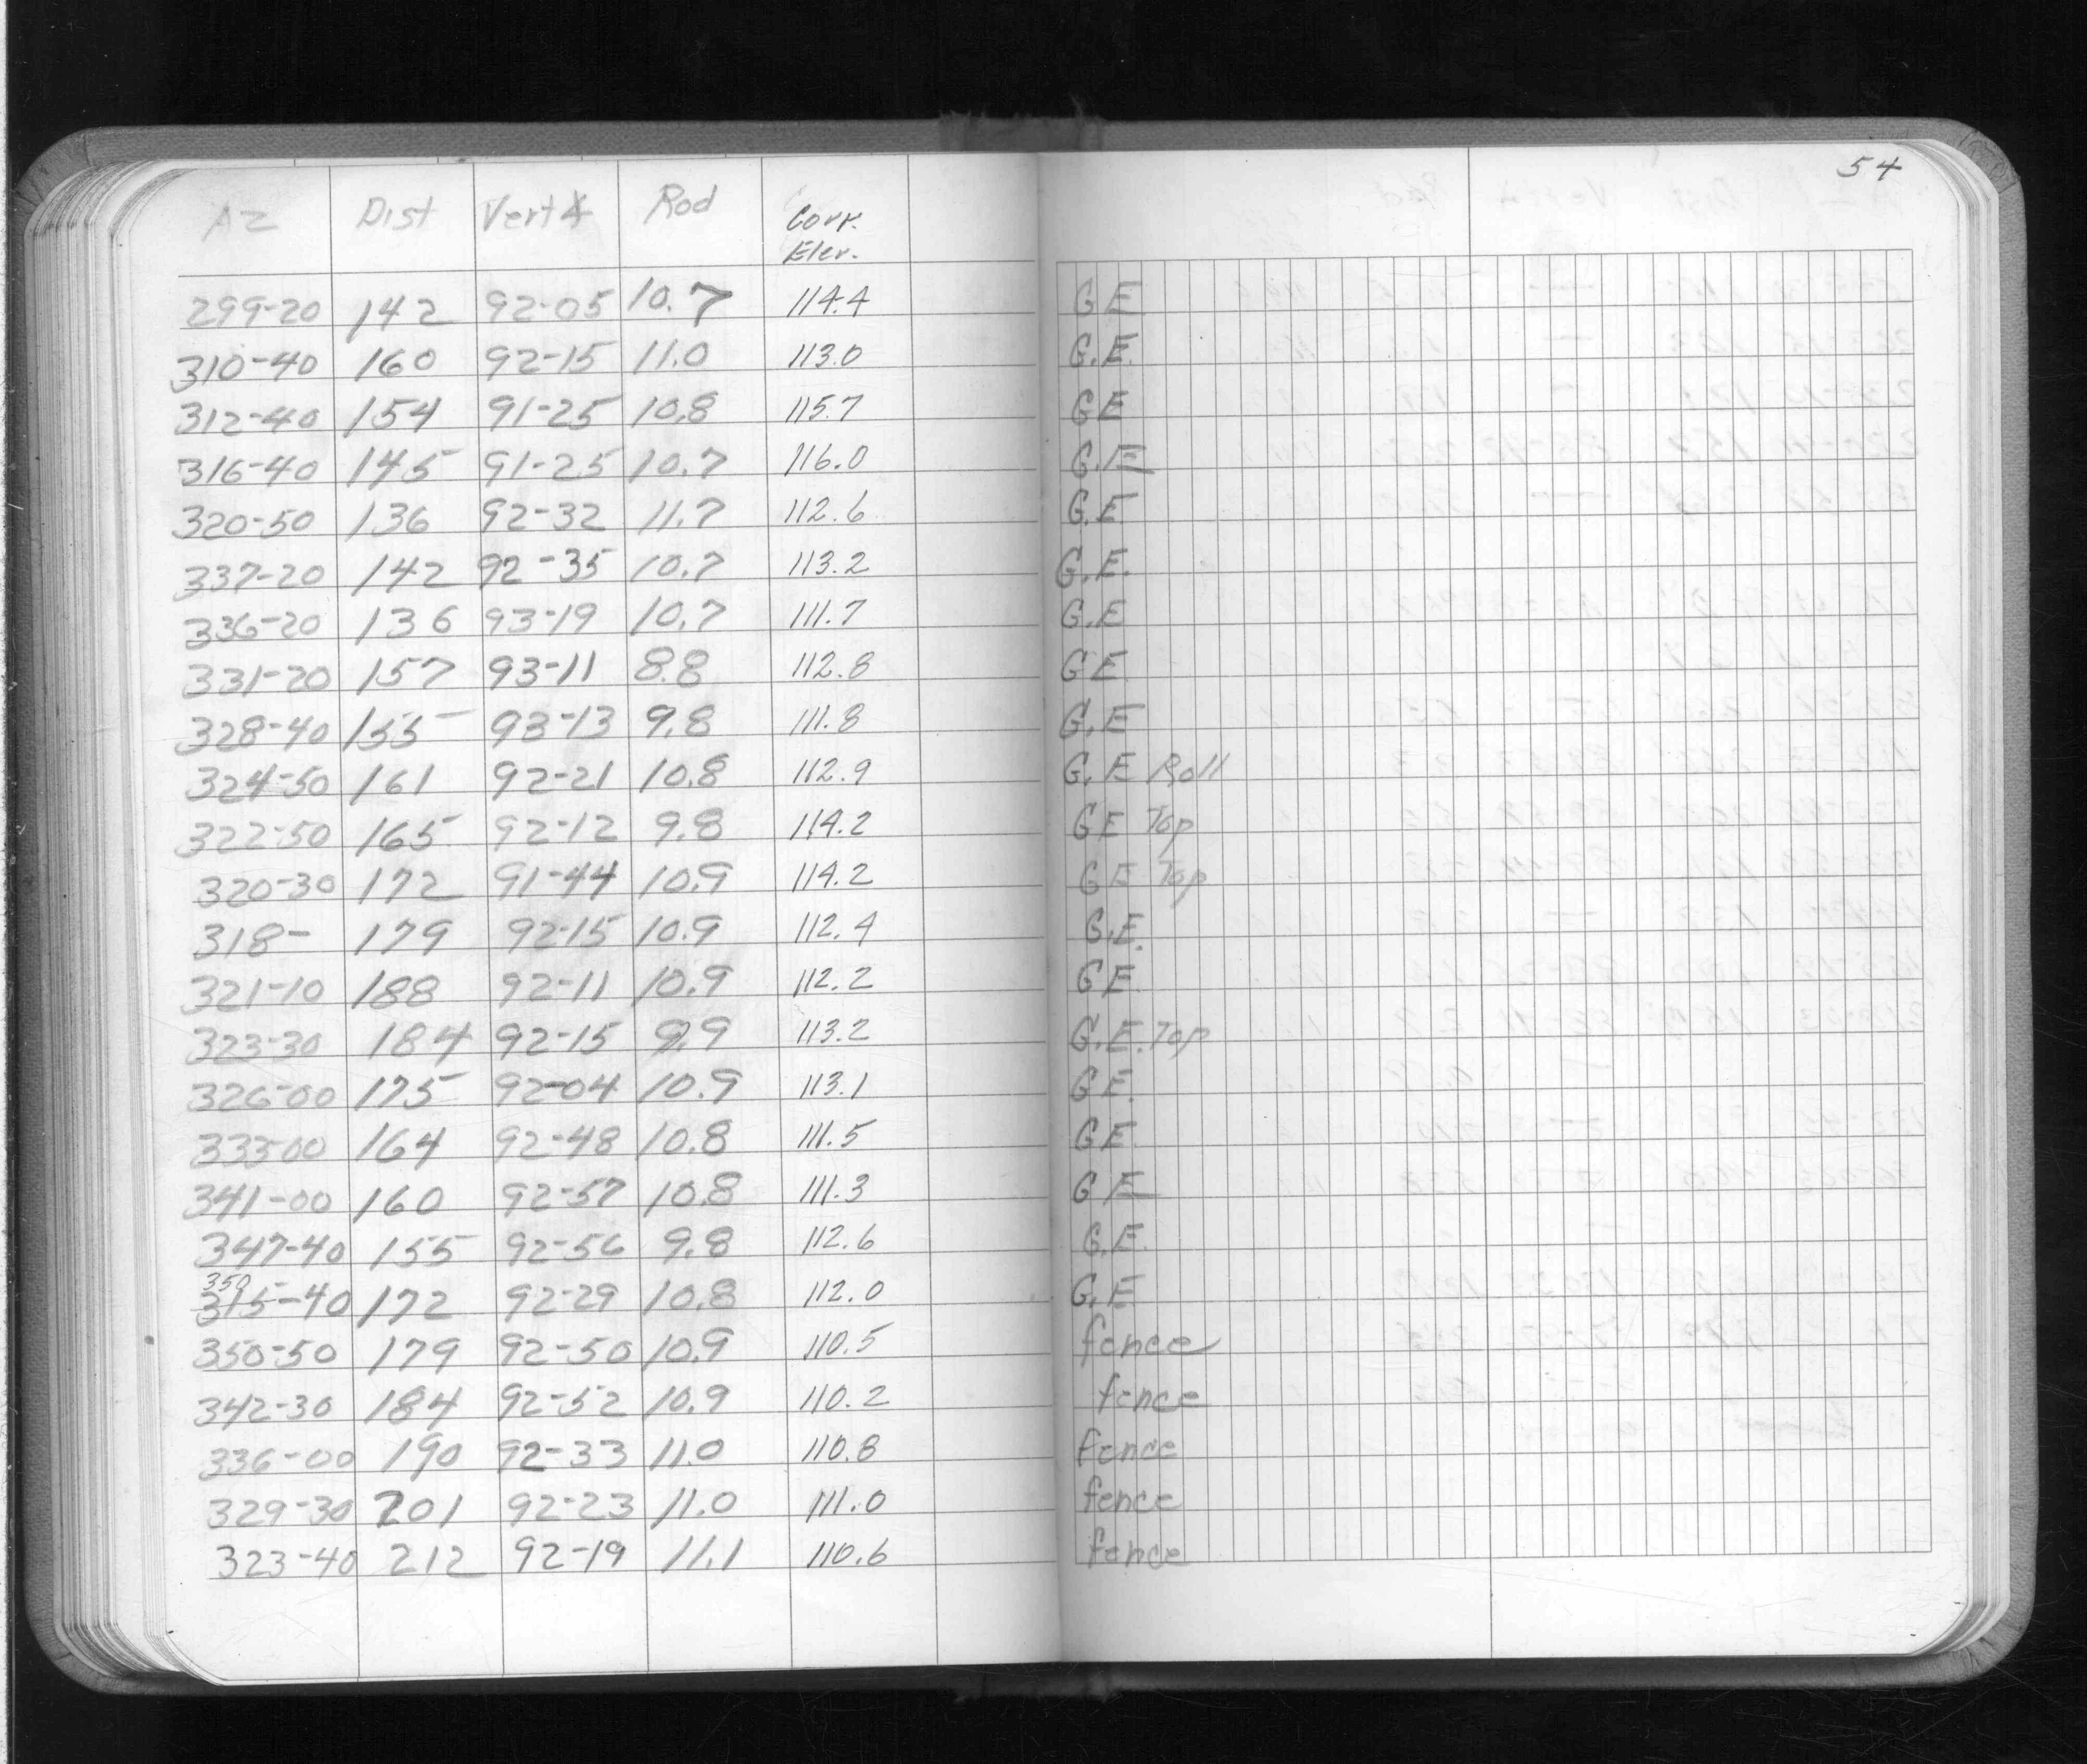 54
Az Dist Vert∡ Rod Corr. Elev.
299-20 142 92-05 10.7 114.4 GE
310-40 160 92-15 11.0 113.0 G.E.
312-40 154 91-25 10.8 115.7 GE
316-40 145 91-25 10.7 116.0 G.E
320-50 136 92-32 11.7 112.6 G.E
337-20 142 92-35 10.7 113.2 G.E.
336-20 136 93-19 10.7 111.7 G.E
331-20 157 93-11 8.8 112.8 GE
328-40 155 93-13 9.8 111.8 G.E
324-50 161 92-21 10.8 112.9 G.E Roll
322-50 165 92-12 9.8 114.2 GE Top
320-30 172 91-44 10.9 114.2 GE Top
318- 179 92-15 10.9 112.4 G.E.
321-10 188 92-11 10.9 112.2 GE
323-30 184 92-15 9.9 113.2 G.E. Top
326-00 175 92-04 10.9 113.1 GE.
333-00 164 92-48 10.8 111.5 GE
341-00 160 92-57 10.8 111.3 G.E
347-40 155 92-56 9.8 112.6 G.E.
350
315-40 172 92-29 10.8 112.0 G.E
350-50 179 92-50 10.9 110.5 fence
342-30 184 92-52 10.9 110.2 fence
336-00 190 92-33 11.0 110.8 fence
329-30 201 92-23 11.0 111.0 fence
323-40 212 92-19 11.1 110.6 fence